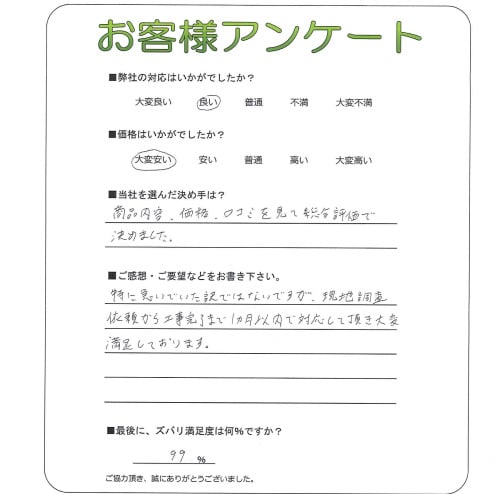 お客様アンケート
■弊社の対応はいかがでしたか？
大変良い 良い 普通 不満 大変不満
■価格はいかがでしたか？
大変安い 安い 普通 高い 大変高い
■当社を選んだ決め手は？
商品内容、価格、口コミを見て総合評価で
決めました。
■ご感想・ご要望などをお書き下さい。
特に急いでいた訳ではないですが、現地調査
依頼から工事完了まで1ヵ月以内で対応して頂き大変
満足しております。
■最後に、ズバリ満足度は何％ですか？
99 ％
ご協力頂き、誠にありがとうございました。